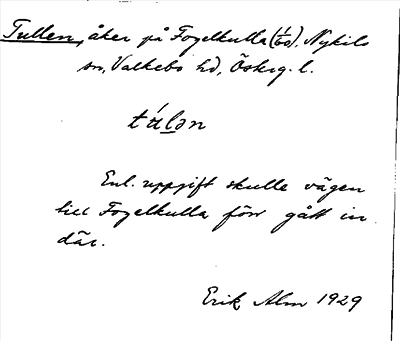 Tullen, åker på Fogelkulla (1/60), Nykils
sn, Valkebo hd, Östrg. l.
túlən
Enl. uppgift skulle vägen
till Fogelkulla förr gått in
där.
Erik Alm 1929